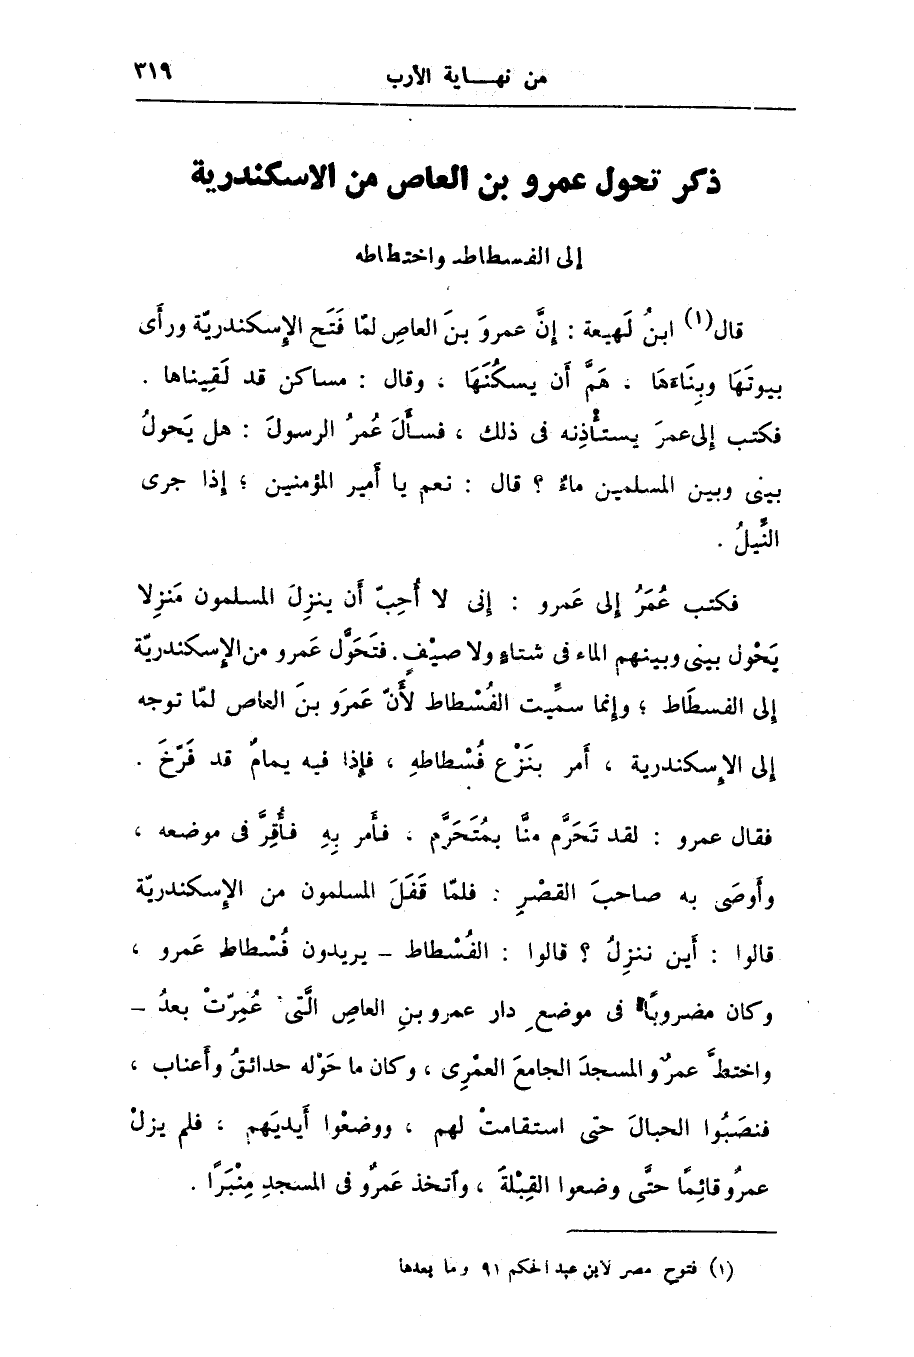 من نهاية الأرب
٣١٩
ذكر تحول عمرو بن العاص من الاسكندرية
إلى الفسطاط واختطاطه
قال(١) ابنُ لَهيعة : إنَّ عمروَ بنَ العاصِ لمّا فَتَح الإسكندريّة ورأَى
بيوتَهَا وبِنَاءَهَا ، هَمَّ أَن يسكُنَهَا ، وقال : مساكن قد لَقِيناها .
فكتب إلى عمرَ يستأْذِنه فى ذلك ، فسأَلَ عُمرُ الرسولَ : هل يَحولُ
بينى وبين المسلمين ماءٌ ؟ قال : نعم يا أَمير المؤمنين ؛ إذا جرى
النِّيلُ .
فكتب عُمَرُ إلى عَمرو : إنى لا أُحِبّ أَن ينزِلَ المسلمون مَنزِلا
يَحْول بينى وبينهم الماء فى شتاءٍ ولا صيْفٍ. فتَحَوَّل عَمرو من الإسكندريّة
إلى الفسطَاط ؛ وإنما سمِّيت الفُسْطاط لأَنّ عَمرَو بنَ العاص لمّا توجه
إلى الإسكندرية ، أَمر بنَزْع فُسْطاطهِ ، فإذا فيه يمامٌ قد فَرّخَ .
فقال عمرو : لقد تَحَرَّم منَّا بمُتَحَرَّم ، فأَمر بِهِ فأُقِرَّ فى موضعه ،
وأَوصَى به صاحبَ القصْرِ : فلمّا قَفَلَ المسلمون من الإسكندريّة
قالوا : أَين ننزِلُ ؟ قالوا : الفُسْطاط – يريدون فُسْطاطَ عَمرو ،
وكان مضروبًا فى موضع دار عمرو بنِ العاصِ الَّتى عُمِرّتْ بعدُ –
واختطَّ عمرٌو المسجدَ الجامعَ العمْرِى ، وكان ما حَوْله حدائقُ وأَعناب ،
فنصَبُوا الحبالَ حتى استقامتْ لهم ، ووضعْوا أَيديَهم ، فلم يزلْ
عمرٌو قائِمًا حتَّى وضعوا القِبْلةَ ، وٱتخذ عَمرٌو فى المسجدِ مِنْبَرًا .
(١) فتوح مصر لابن عبد الحكم ٩١ وما بعدها